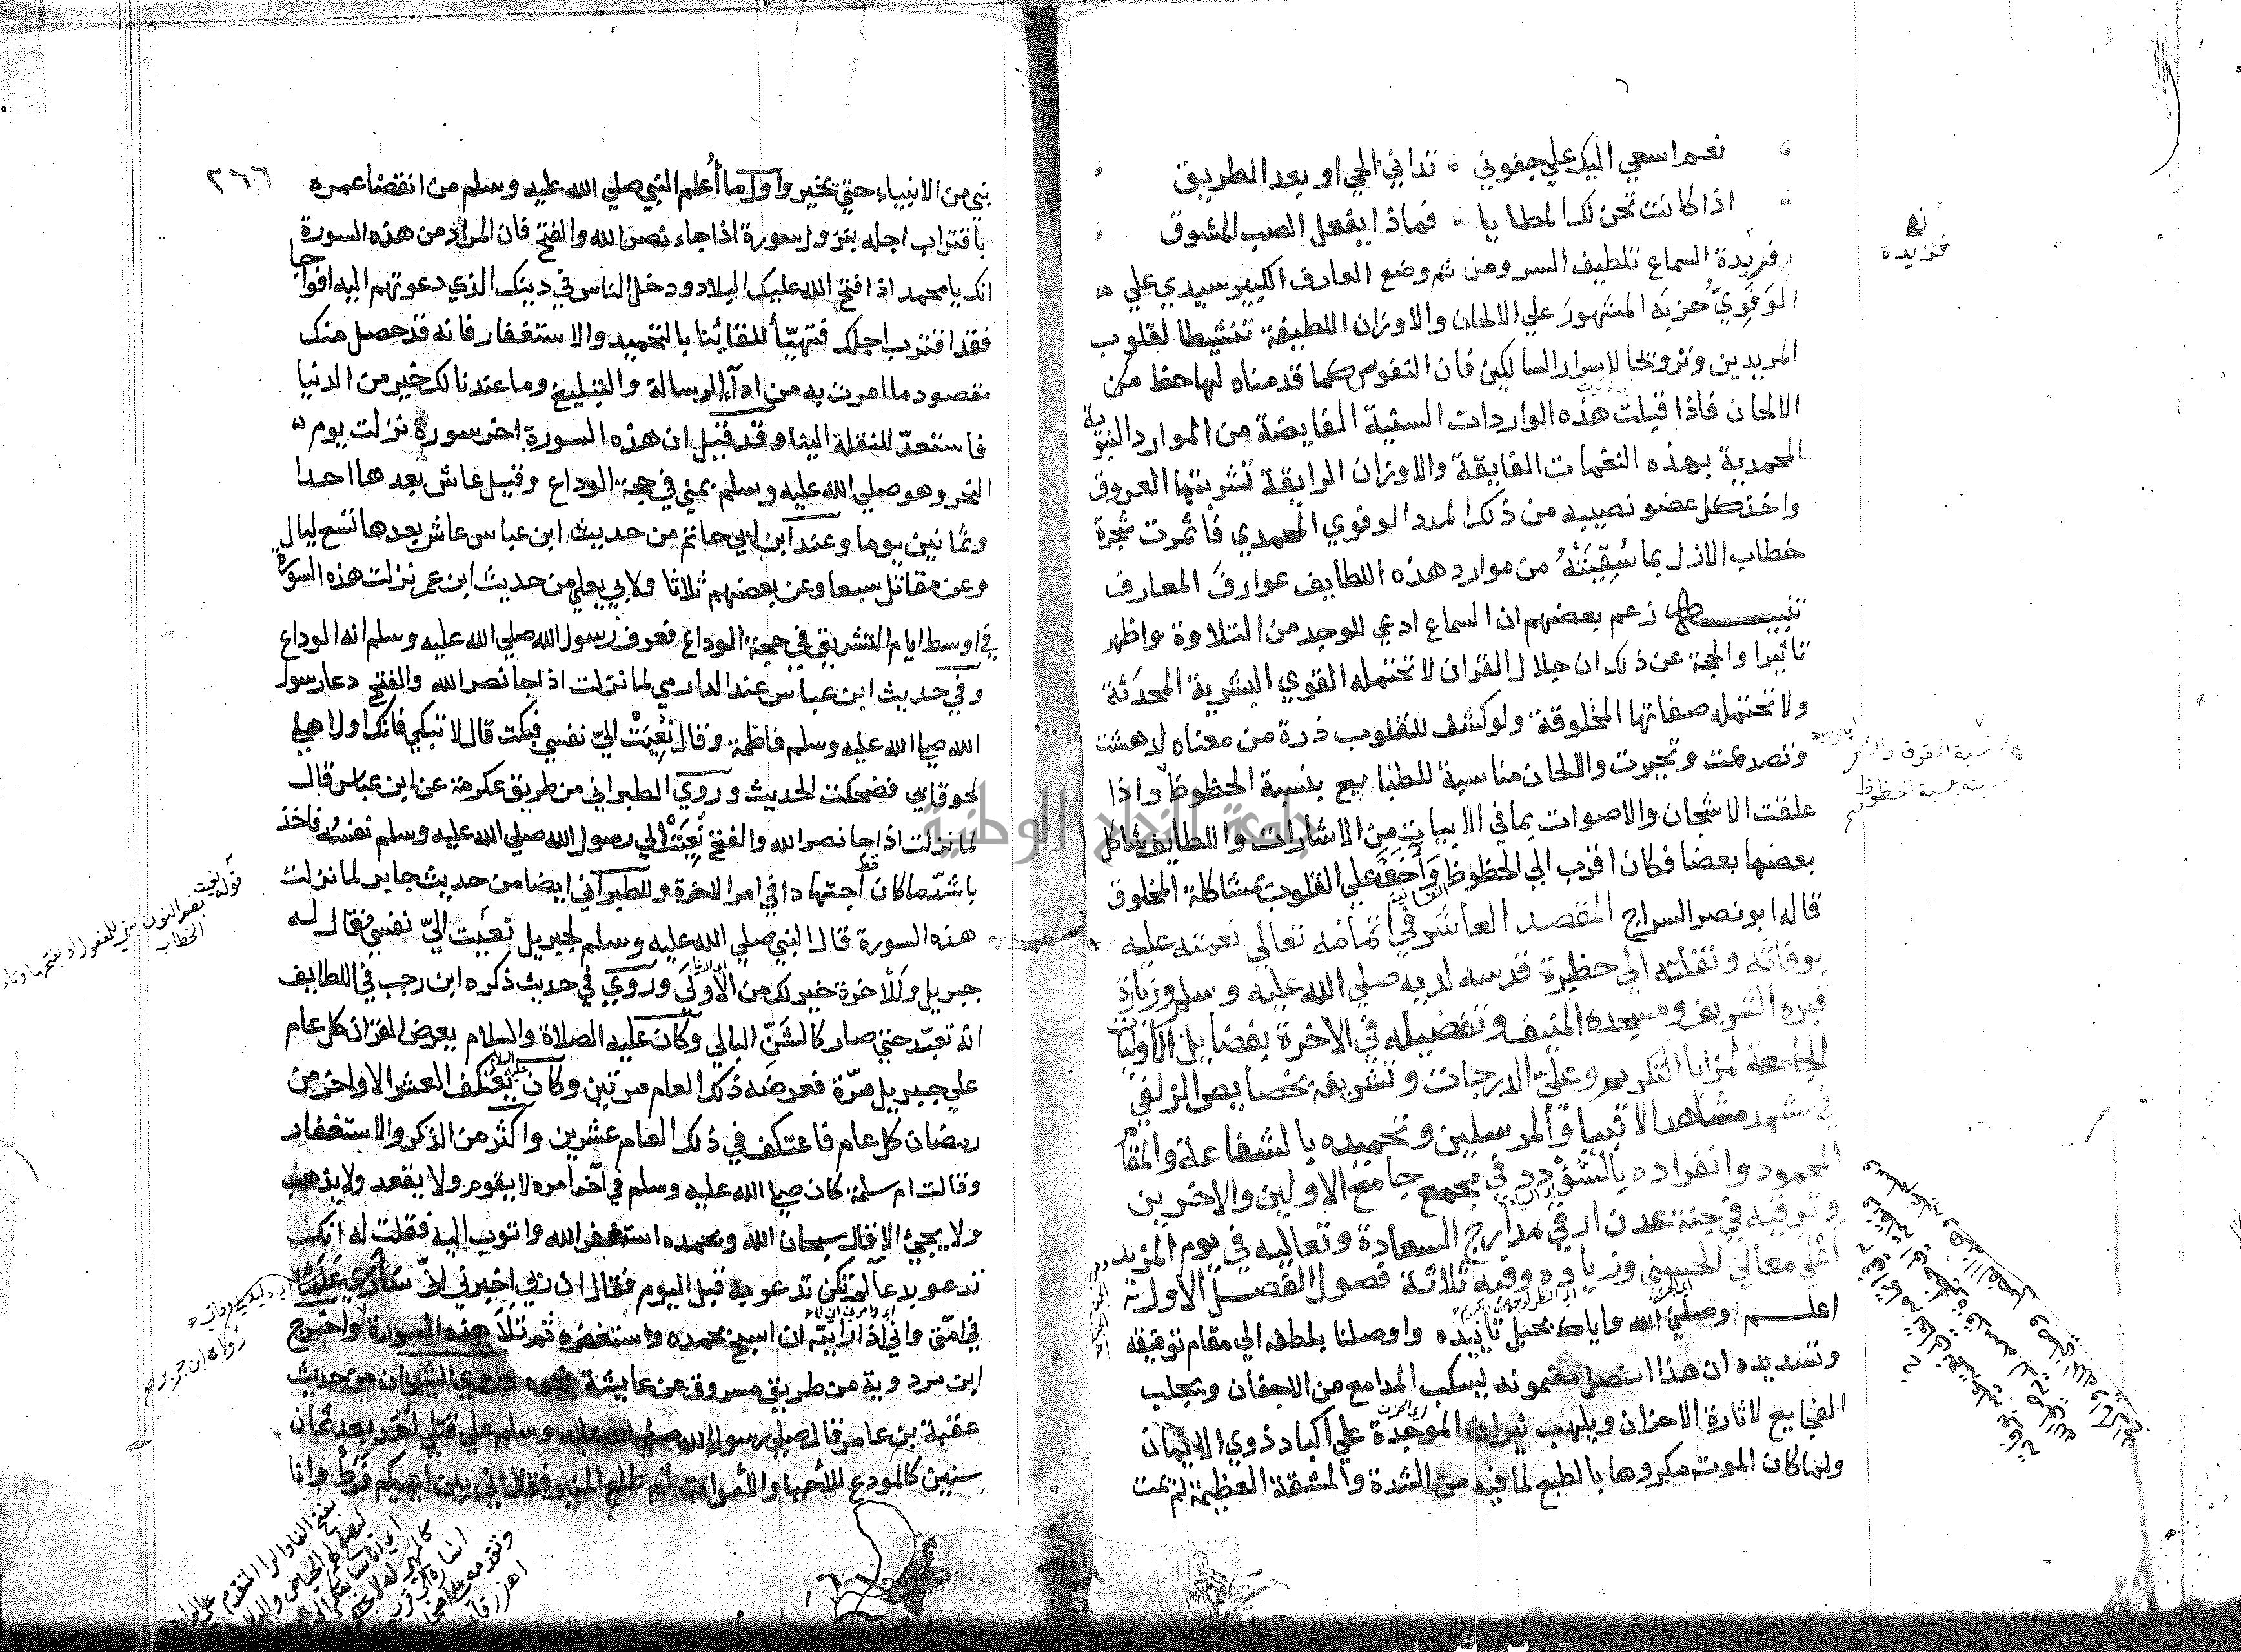 نعم اسعي اليك علي جفوني ۞ تداني الحي او بعد الطريق
اذا كانت تحن لك المطايا ۞ فماذا يفعل الصب المشوق
فزيدة السماع تلطيف السر ومن ثم وضع العارف الكبير سيدي علي
الوفوي حزبه المشهور علي الالحان والاوزان اللطيفة تنشيطا لقلوب
المريدين وترويحا لاسرار السالكين فان النفوس كما قدمناه لها حظ من
الالحان فاذا قيلت هذه الواردات السنية الفايضة من الموارد النبوية
المحمدية بهذه النغمات الفايقة والاوزان الرايقة تشربتها العروق
واخذ كل عضو نصيبه من ذلك المدد الوفوي المحمدي فاثمرت شجرة
خطاب الازل بما سقيته من موارد هذه اللطايف عوارف المعارف
تنبيه زعم بعضهم ان السماع ادعي للوجد من التلاوة واظهر
تاثيرا والحجة عن ذلك ان جلال القران لا تحتمله القوي البشرية المحدثة
ولا تحتمله صفاتها المخلوقة ولو كشف للقلوب ذرة من معناه لدهشت
وتصدعت وتحيرت والالحان مناسبة للطبايع بنسبة الحظوظ واذا
علقت الاشجان والاصوات بما في الابيات من الاشارات واللطايف شاكل
بعضها بعضا فكان اقرب الي الحظوظ واخف علي القلوب بمشاكلة المخلوق
قاله ابو نصر السراج المقصد العاشر في اتمامه تعالي نعمته عليه
بوفاته ونقلته الي حظيرة قدسه لديه صلي الله عليه وسلم وزيارة
قبره الشريف ومسجده المنيف وتفضيله في الاخرة بفضايل الاوليات
الجامعة لمزايا التكريم وعلي الدرجات وتشريفه بخصايص الزلفي
في مشهد مشاهد الانبيا والمرسلين وتحميده بالشفاعة والمقام
المحمود وانفراده بالسؤدد في مجمع جامع الاولين والاخرين
وترقيه في جنة عدن ارقي مدارج السعادة وتعاليه في يوم المزيد
اعلي معالي الحسني وزياده وفيه ثلاثة فصول الفصل الاول
اعلم وصلني الله واياك بحبل تاييده واوصلنا بلطفه الي مقام توفيقه
وتسديده ان هذا الفصل مضمونه يسكب المدامع من الاجفان ويجلب
الفجايع لاثارة الاحزان ويلهب نيران الموجدة علي اكباد ذوي الايمان
ولما كان الموت مكروها بالطبع لما فيه من الشدة والمشقة العظيمة لم يمت
فزيدة
٣٦٦
نبي من الانبياء حتي يخير واول ما اعلم النبي صلي الله عليه وسلم من انقضا عمره
باقتراب اجله بنزول سورة اذا جاء نصر الله والفتح فان المراد من هذه السورة
انك يا محمد اذا فتح الله عليك البلاد ودخل الناس في دينك الذي دعوتهم اليه افواجا
فقد اقترب اجلك فتهيأ للقائنا بالتحميد والاستغفار فانه قد حصل منك
مقصود ما امرت به من اداء الرسالة والتبليغ وما عندنا لك خير من الدنيا
فاستعد للنقلة الينا وقد قيل ان هذه السورة اخر سورة نزلت يوم
النحر وهو صلي الله عليه وسلم بمني في حجة الوداع وقيل عاش بعدها احدا
وثمانين يوما وعند ابن ابي حاتم من حديث ابن عباس عاش بعدها تسع ليال
وعن مقاتل سبعا وعن بعضهم ثلاثا ولابي يعلي من حديث ابن عمر نزلت هذه السورة
في اوسط ايام التشريق في حجة الوداع فعرف رسول الله صلي الله عليه وسلم انه الوداع
وفي حديث ابن عباس عند الدارمي لما نزلت اذا جا نصر الله والفتح دعا رسول
الله صلي الله عليه وسلم فاطمة وقال نعيت الي نفسي فبكت قال لا تبكي فانك اول اهلي
لحوقا بي فضحكت الحديث وروي الطبراني من طريق عكرمة عن ابن عباس قال
لما نزلت اذا جا نصر الله والفتح نعيت الي رسول الله صلي الله عليه وسلم نفسه فاخذ
باشد ما كان قط اجتهادا في امر الاخرة وللطبراني ايضا من حديث جابر لما نزلت
هذه السورة قال النبي صلي الله عليه وسلم لجبريل نعيت الي نفسي فقال له
جبريل وللاخرة خير لك من الاولي وروي في حديث ذكره ابن رجب في اللطايف
انه تعبد حتي صار كالشن البالي وكان عليه الصلاة والسلام يعرض القران كل عام
علي جبريل مرة فعرضه ذلك العام مرتين وكان عليه السلام يعتكف العشر الاواخر من
رمضان كل عام فاعتكف في ذلك العام عشرين واكثر من الذكر والاستغفار
وقالت ام سلمة كان صلي الله عليه وسلم في آخر امره لا يقوم ولا يقعد ولا يذهب
ولا يجيئ الا قال سبحان الله وبحمده استغفر الله واتوب اليه فقلت له انك
تدعو بدعا لم تكن تدعو به قبل اليوم فقال ان ربي اخبرني اني ساري علما
في امتي واني اذا رايته ان اسبح بحمده واستغفره ثم تلا هذه السورة واخرج
ابن مردوية من طريق مسروق عن عايشة نحوه وروي الشيخان من حديث
عقبة بن عامر قال صلي رسول الله صلي الله عليه وسلم علي قتلي احد بعد ثمان
سنين كالمودع للاحيا والاموات ثم طلع المنبر فقال اني بين ايديكم فرط وانا
رواه ابن جرير
جامعة النجاح الوطنية